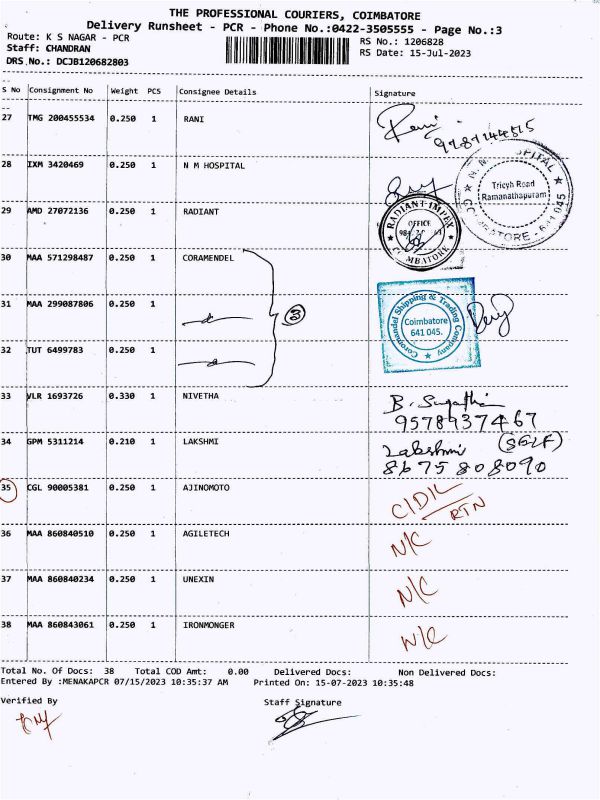 THE PROFESSIONAL COURIERS, COIMBATORE
Delivery Runsheet - PCR - Phone No.:0422-3505555 - Page No.:3
Route: K S NAGAR - PCR
RS No.: 1206828
Staff: CHANDRAN
RS Date: 15-Jul-2023
DRS No.: DCJB120682803
S No Consignment No Weight PCS Consignee Details Signature
27 TMG 200455534 0.250 1 RANI Rani
28 IXM 3420469 0.250 1 N M HOSPITAL
N.M. HOSPITAL
Tricyh Road
Ramanathapuram
COIMBATORE - 641 045
29 AMD 27072136 0.250 1 RADIANT
RADIANT IMPEX
OFFICE
COIMBATORE
30 MAA 571298487 0.250 1 CORAMENDEL
31 MAA 299087806 0.250 1 3
Coromandel Shipping & Trading Company
Coimbatore
641 045.
32 TUT 6499783 0.250 1
33 VLR 1693726 0.330 1 NIVETHA
9578937467
34 GPM 5311214 0.210 1 LAKSHMI Lakshmi (SELF)
8675808090
35 CGL 90005381 0.250 1 AJINOMOTO C/D/L
RTN
36 MAA 860840510 0.250 1 AGILETECH N/C
37 MAA 860840234 0.250 1 UNEXIN N/C
38 MAA 860843061 0.250 1 IRONMONGER N/C
Total No. Of Docs: 38 Total COD Amt: 0.00 Delivered Docs: Non Delivered Docs:
Entered By :MENAKAPCR 07/15/2023 10:35:37 AM Printed On: 15-07-2023 10:35:48
Verified By Staff Signature